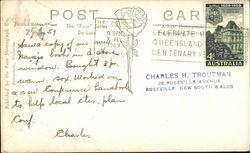 POST CARD
The "Rose" Series
De Luxe
Published by the Rose Stereograph Co.
7/5/59
CELEBRATE
QUEENSLAND
CENTENARY
AUSTRALIA
Saw a copy of our new
Navajo book in a store
window. Bought 2 pr.
wool sox. Worked on
a new Conference Handbook
to help local ctes. plan
Conf.
Charles
CHARLES H. TROUTMAN
26 ROSEVILLE AVENUE
ROSEVILLE, NEW SOUTH WALES